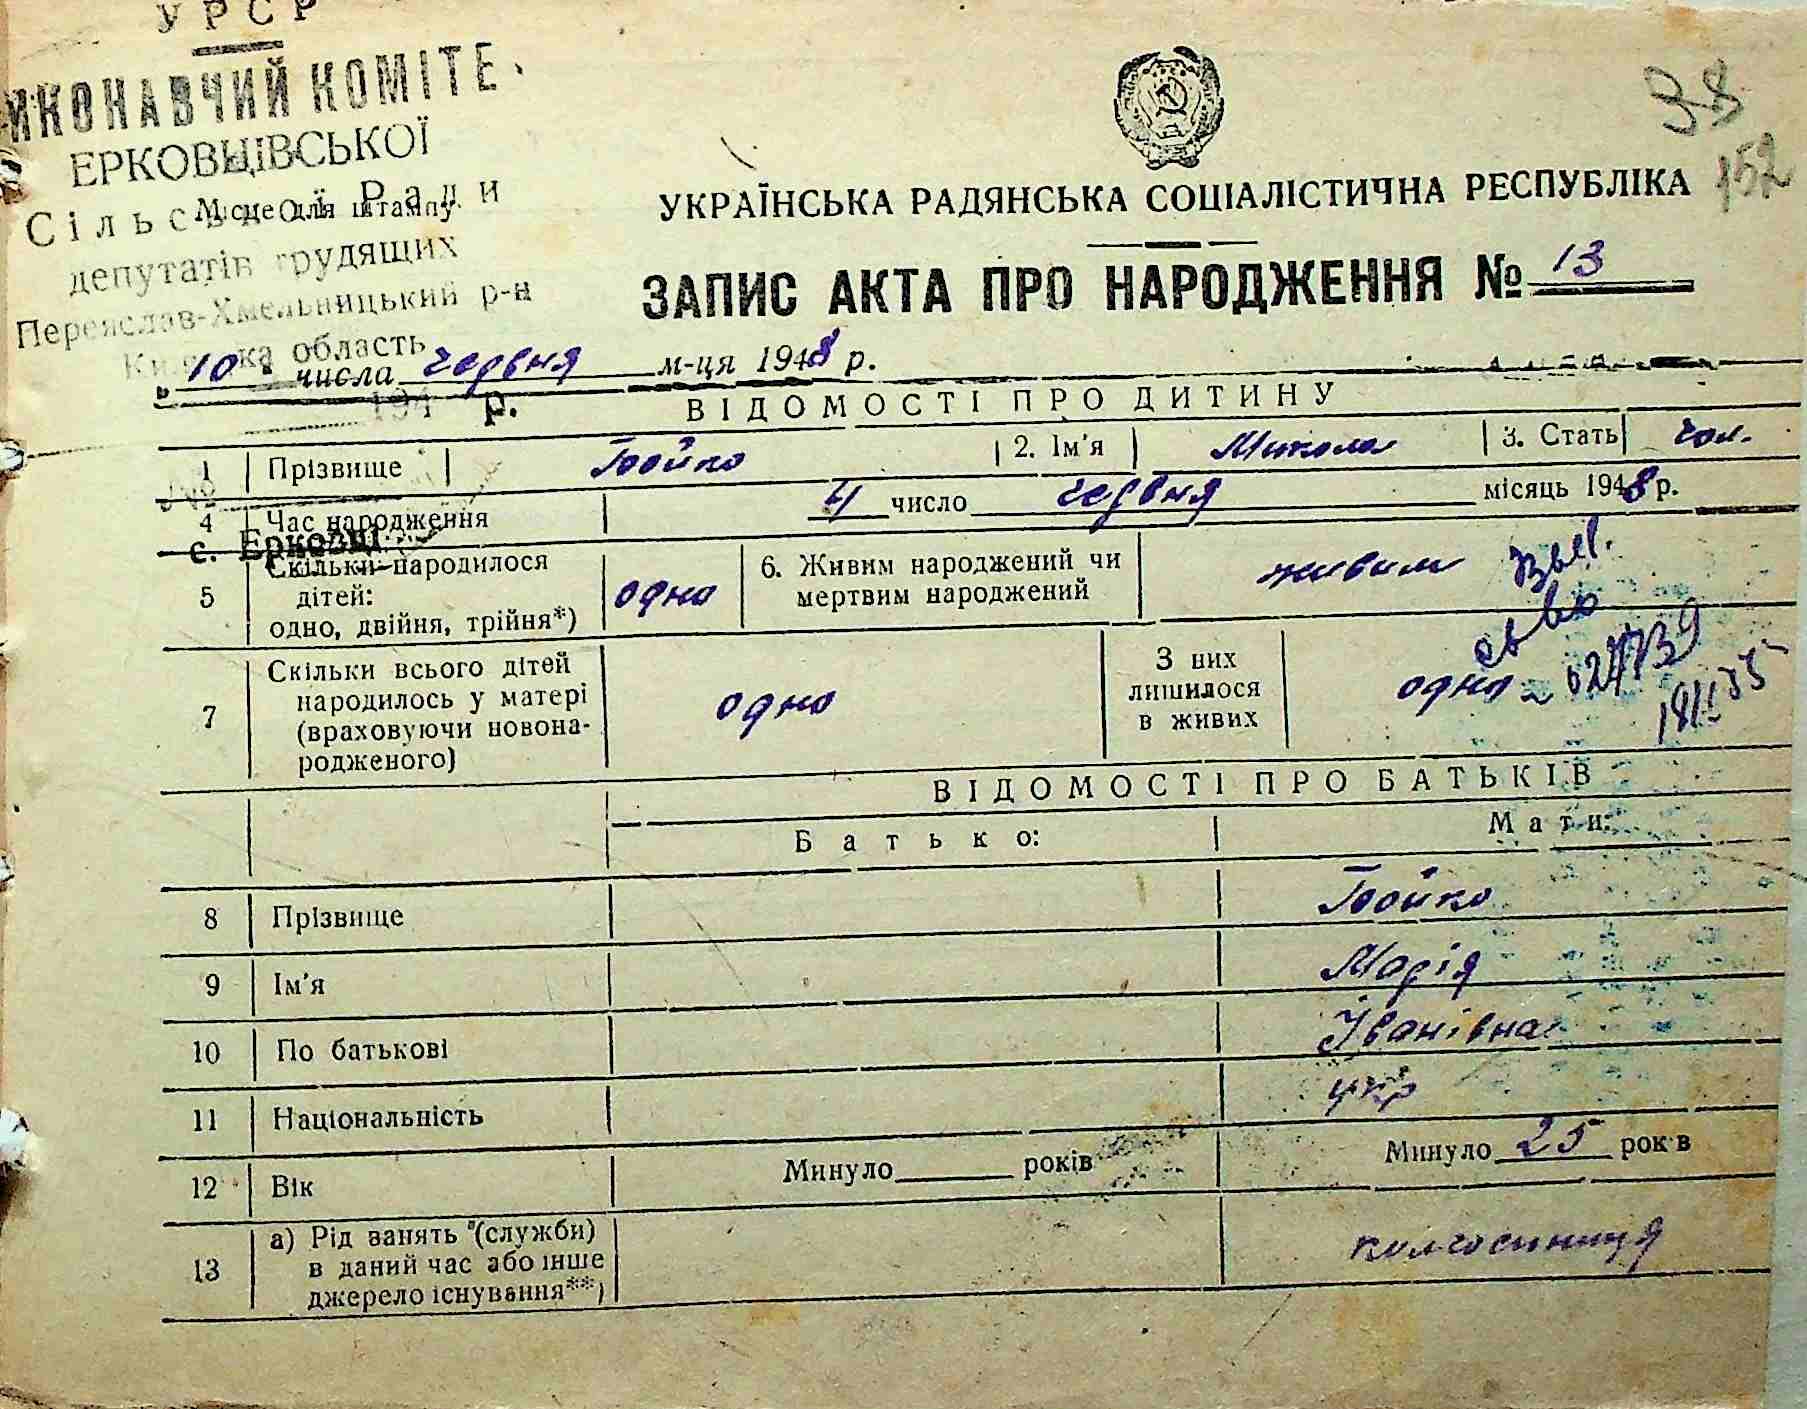 УРСР
ИКОНАВЧИЙ КОМІТЕ
ЕРКОВЦІВСЬКОЇ
Сільської Ради
Місце для штампу
депутатів трудящих
Переяслав-Хмельницький р-н
Київська область
194 р.
с. Ерковці
38
152
УКРАЇНСЬКА РАДЯНСЬКА СОЦІАЛІСТИЧНА РЕСПУБЛІКА
ЗАПИС АКТА ПРО НАРОДЖЕННЯ № 13
„10" числа червня м-ця 1948 р.
ВІДОМОСТІ ПРО ДИТИНУ
1 Прізвище Бойко 2. Ім'я Микола 3. Стать чол.
4 Час народження 4 число червня місяць 1948 р.
5 Скільки народилося дітей: одно, двійня, трійня*) одно 6. Живим народжений чи мертвим народжений живим
7 Скільки всього дітей народилось у матері (враховуючи новонародженого) одно З них лишилося в живих одно
ВІДОМОСТІ ПРО БАТЬКІВ
Батько: Мати:
8 Прізвище Бойко
9 Ім'я Марія
10 По батькові Іванівна
11 Національність укр
12 Вік Минуло років Минуло 25 років
13 а) Рід занять (служби) в даний час або інше джерело існування**) колгоспниця